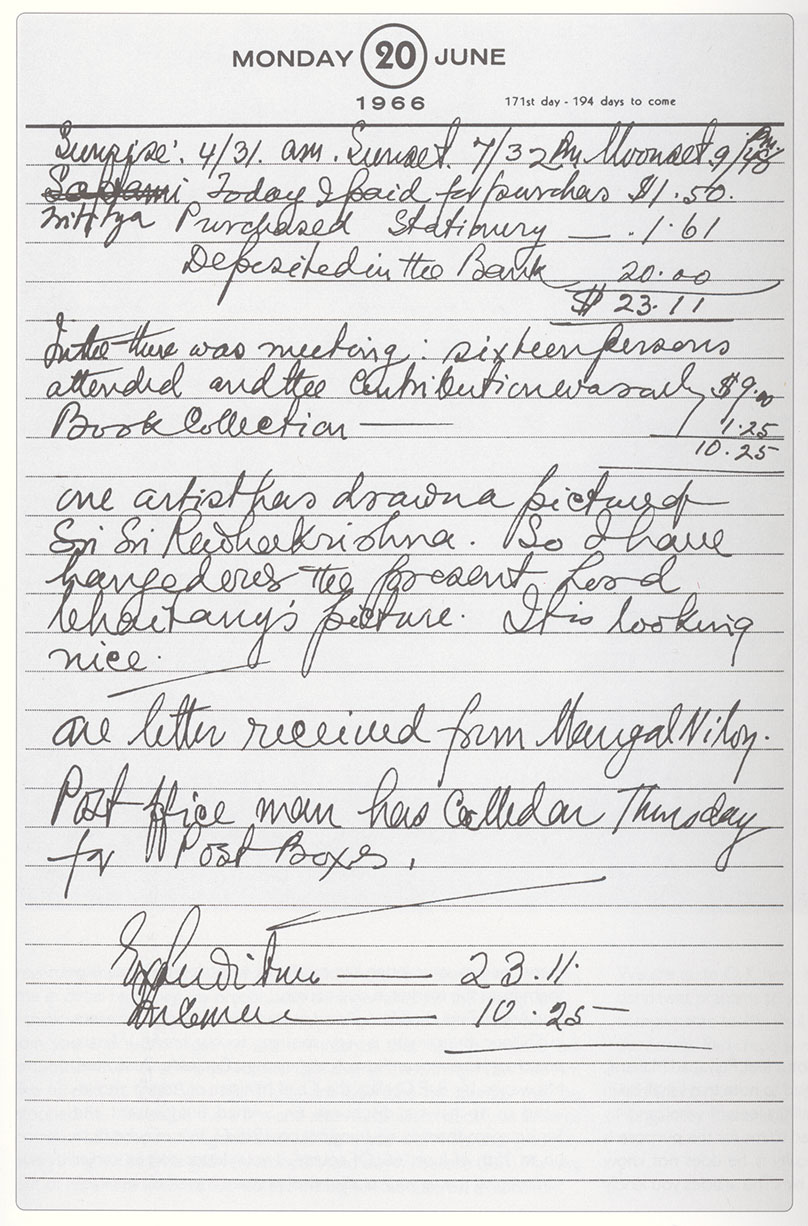 MONDAY 20 JUNE
1966 171st day - 194 days to come
Sunrise: 4/31. am. Sunset. 7/32 Pm Moonset 9/48 Pm
Today I paid for purchas $1.50.
Tritiya Purchased Stationery — .1.61
Deposited in the Bank 20.00
$ 23.11
In the there was meeting: sixteen persons
attended and the Contribution was only $9.00
Book Collection — 1.25
10.25
one artist has drawn a picture of
Sri Sri Radhakrishna. So I have
hanged over the present Lord
Chaitanya's picture. It is looking
nice.
one letter received from Mangal Niloy.
Post office man has Called on Thursday
for Post Boxes.
Expenditure — 23.11.
Income — 10.25